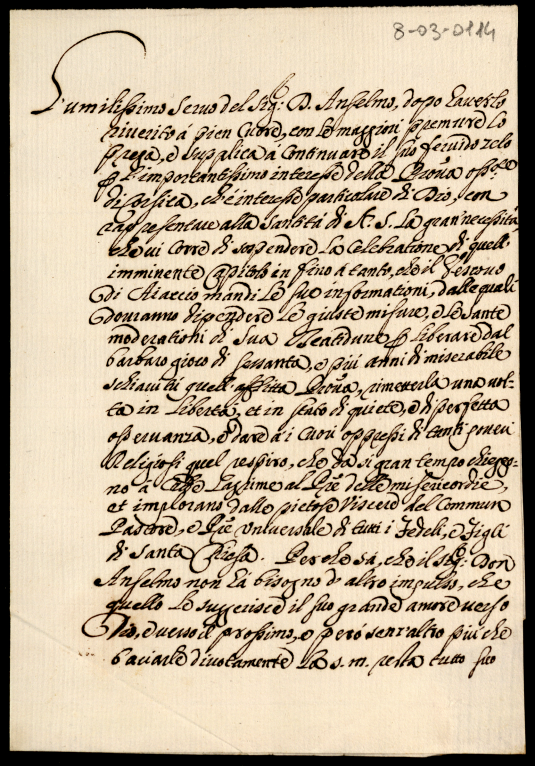 8-03-0114
L'umilissimo Servo del Sig.r D. Anselmo, dopo haverlo
riverito à pien Cuore, con le maggiori premure lo
prega, e supplica à continuare il suo fervido zelo
p l'importantissimo interesse della Prov.a oss.te
di Corsica, che è interesse particolare di Dio, con
rappresentare alla Santità di N. S. la gran necessità,
che vi corre di sospendere la Celebratione di quell'
imminente Capitolo in fino à tanto, che il Vescovo
di Aiaccio mandi le sue informationi, dalle quali
dovranno dipendere le giuste misure, e le sante
moderationi di Sua Beatitudine p liberare dal
barbaro gioco di sessanta, e più anni di miserabile
schiavitù quell'afflitta Prov.a, rimetterla una vol-
ta in libertà, et in stato di quiete, e di perfetta
osservanza, e dare à i Cuori oppressi di tanti poveri
Religiosi quel respiro, che da sì gran tempo chieggo-
no à Calde Lagrime al Pre delle misericordie,
et implorano dalle pietose Viscere del Commun
Pastore, e Pre Universale di tutti i Fedeli, e Figli
di Santa Chiesa. Perche sa, che il Sig.r Don
Anselmo non hà bisogno d'altro impulso, che
quello le suggerisce il suo grande amore verso
Dio, e verso il prossimo, e però senz'altro più che
baciarle divotamente la s. m. resta tutto suo